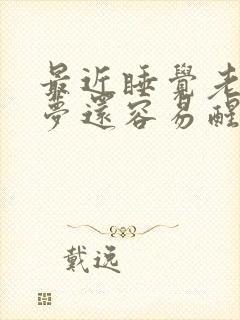 最近睡覺老
夢還容易醒
戴逸